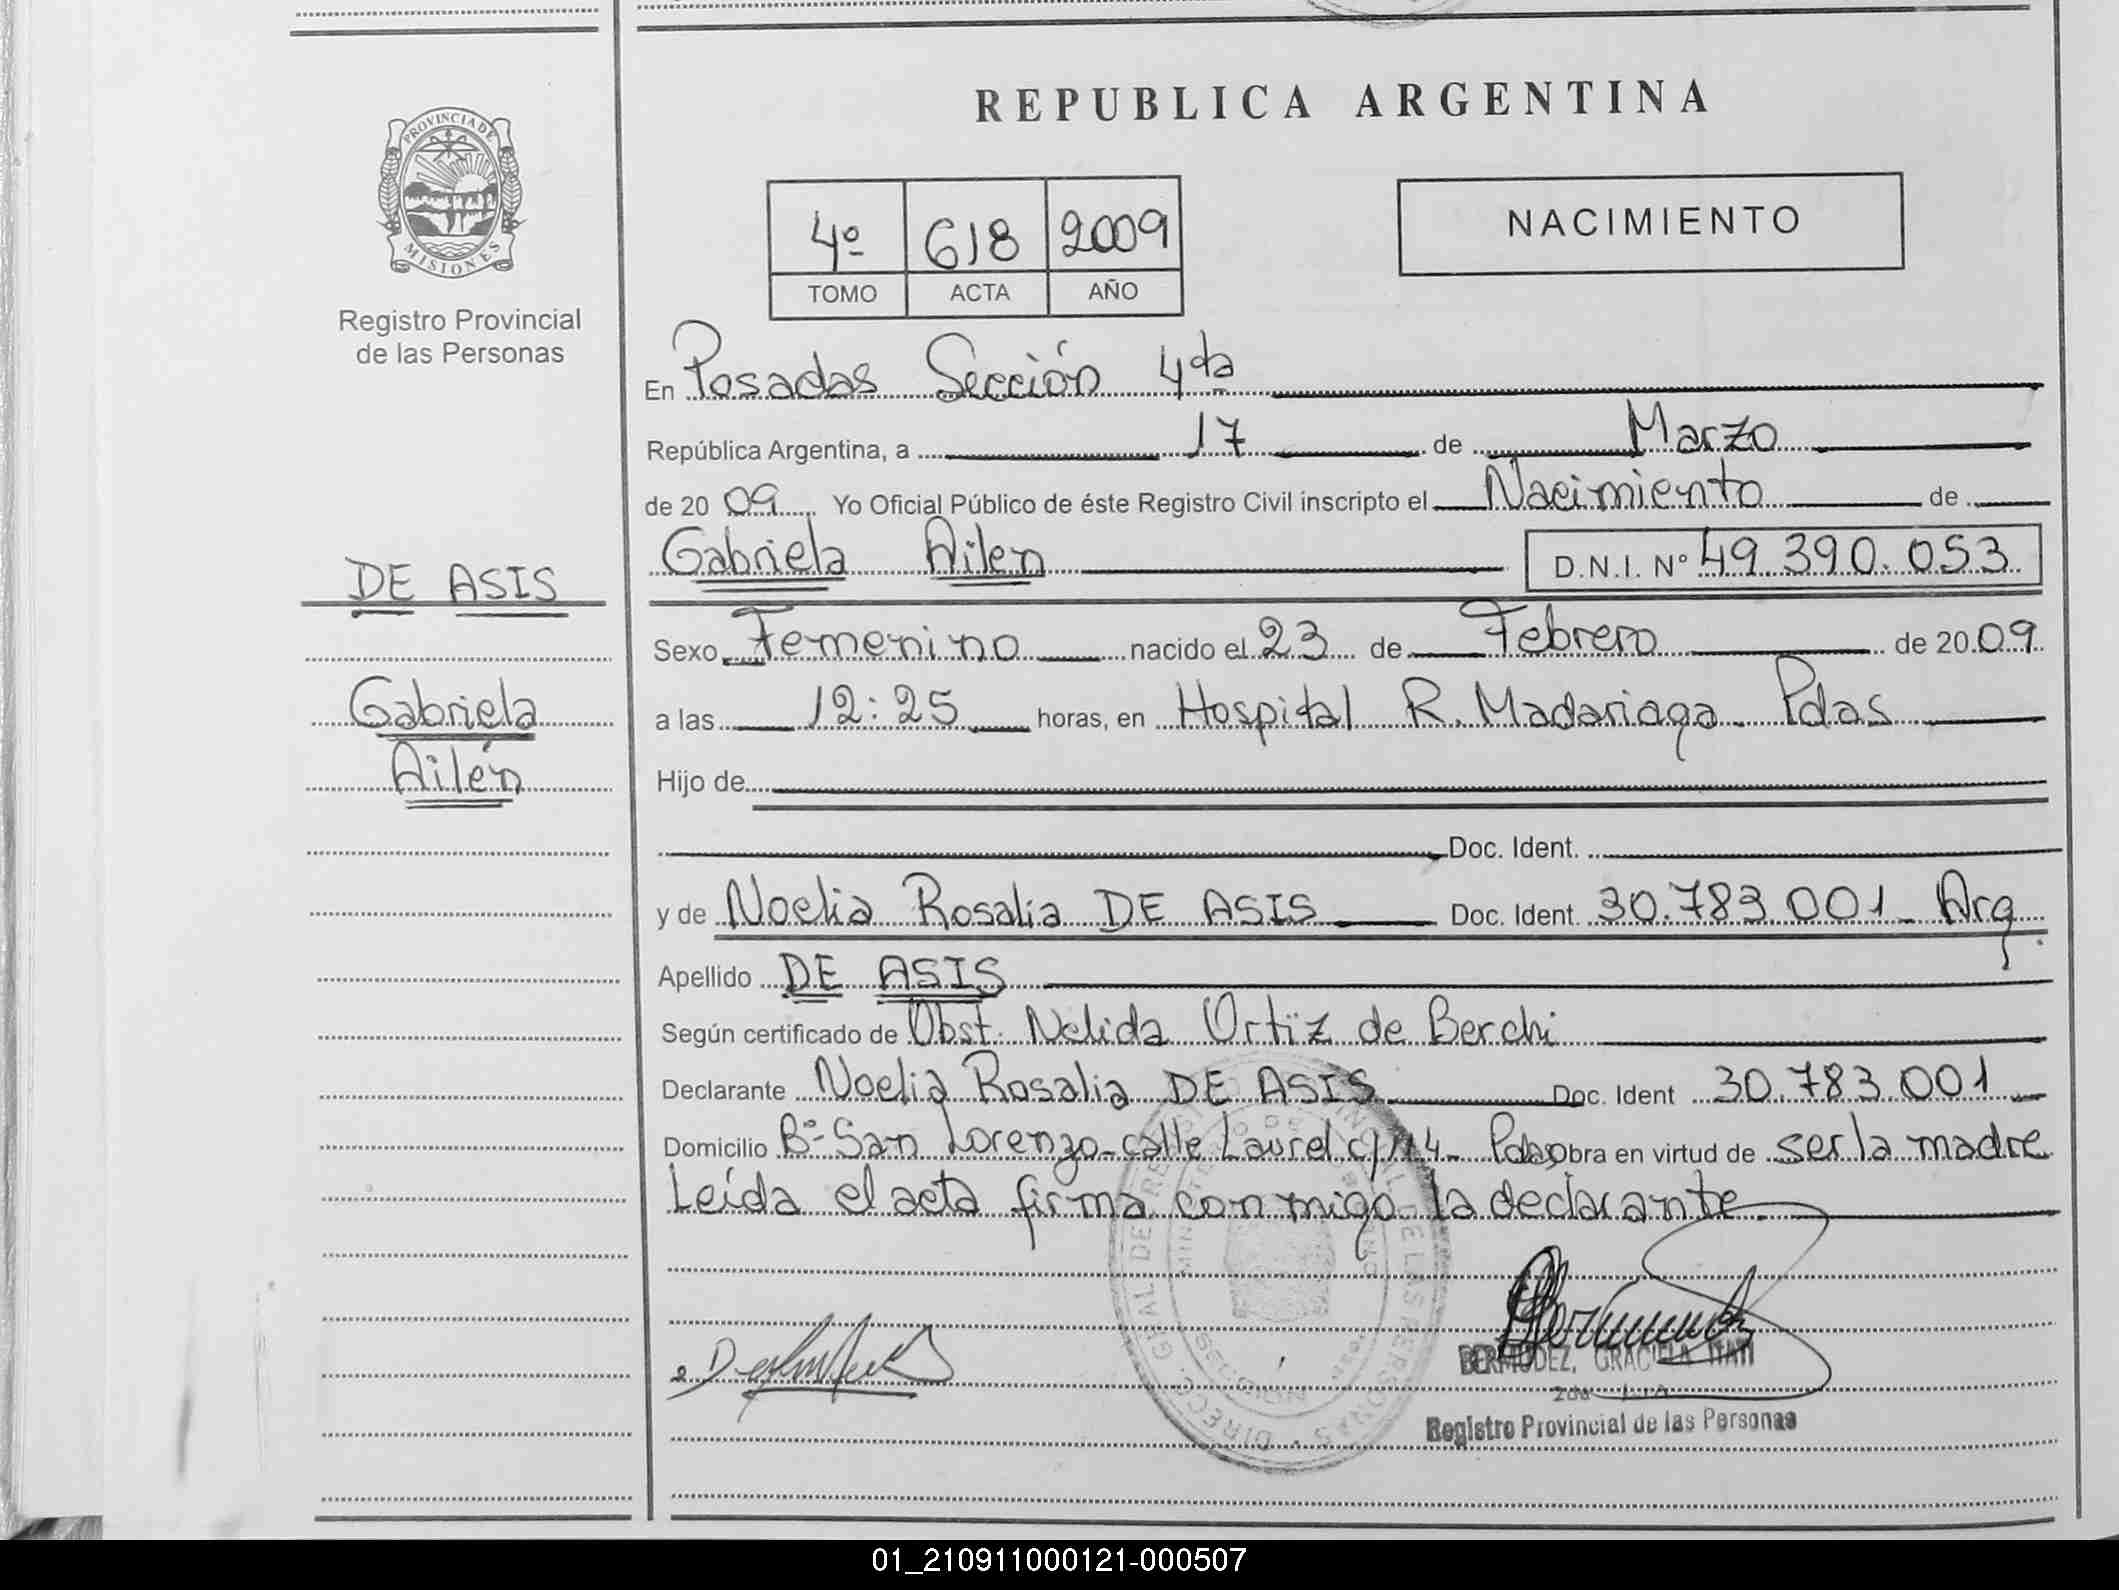 REPUBLICA ARGENTINA
PROVINCIA DE
MISIONES
Registro Provincial
de las Personas
4º 618 2009
TOMO ACTA AÑO
NACIMIENTO
En Posadas Sección 4ta
República Argentina, a 17 de Marzo
de 2009 Yo Oficial Público de éste Registro Civil inscripto el Nacimiento de
DE ASIS
Gabriela Ailen D.N.I. Nº 49.390.053
Sexo Femenino nacido el 23 de Febrero de 2009
Gabriela
Ailén
a las 12:25 horas, en Hospital R. Madariaga Pdas
Hijo de
Doc. Ident.
y de Noelia Rosalia DE ASIS Doc. Ident. 30.783.001 - Arg.
Apellido DE ASIS
Según certificado de Obst. Nelida Ortiz de Berchi
Declarante Noelia Rosalia DE ASIS Doc. Ident 30.783.001
Domicilio Bº San Lorenzo - calle Laurel Obra en virtud de ser la madre
Leída el acta firma con migo la declarante
BERMUDEZ, GRACIELA ITATI
Registro Provincial de las Personas
01_210911000121-000507